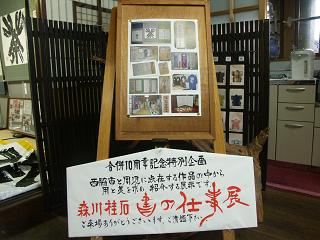 合併10周年記念特別企画
西脇市と周辺に点在する作品の中から、
用と美を求め紹介する展示です。
森川桂石 書の仕事展
ご来場ありがとうございます。ご清鑑下さい